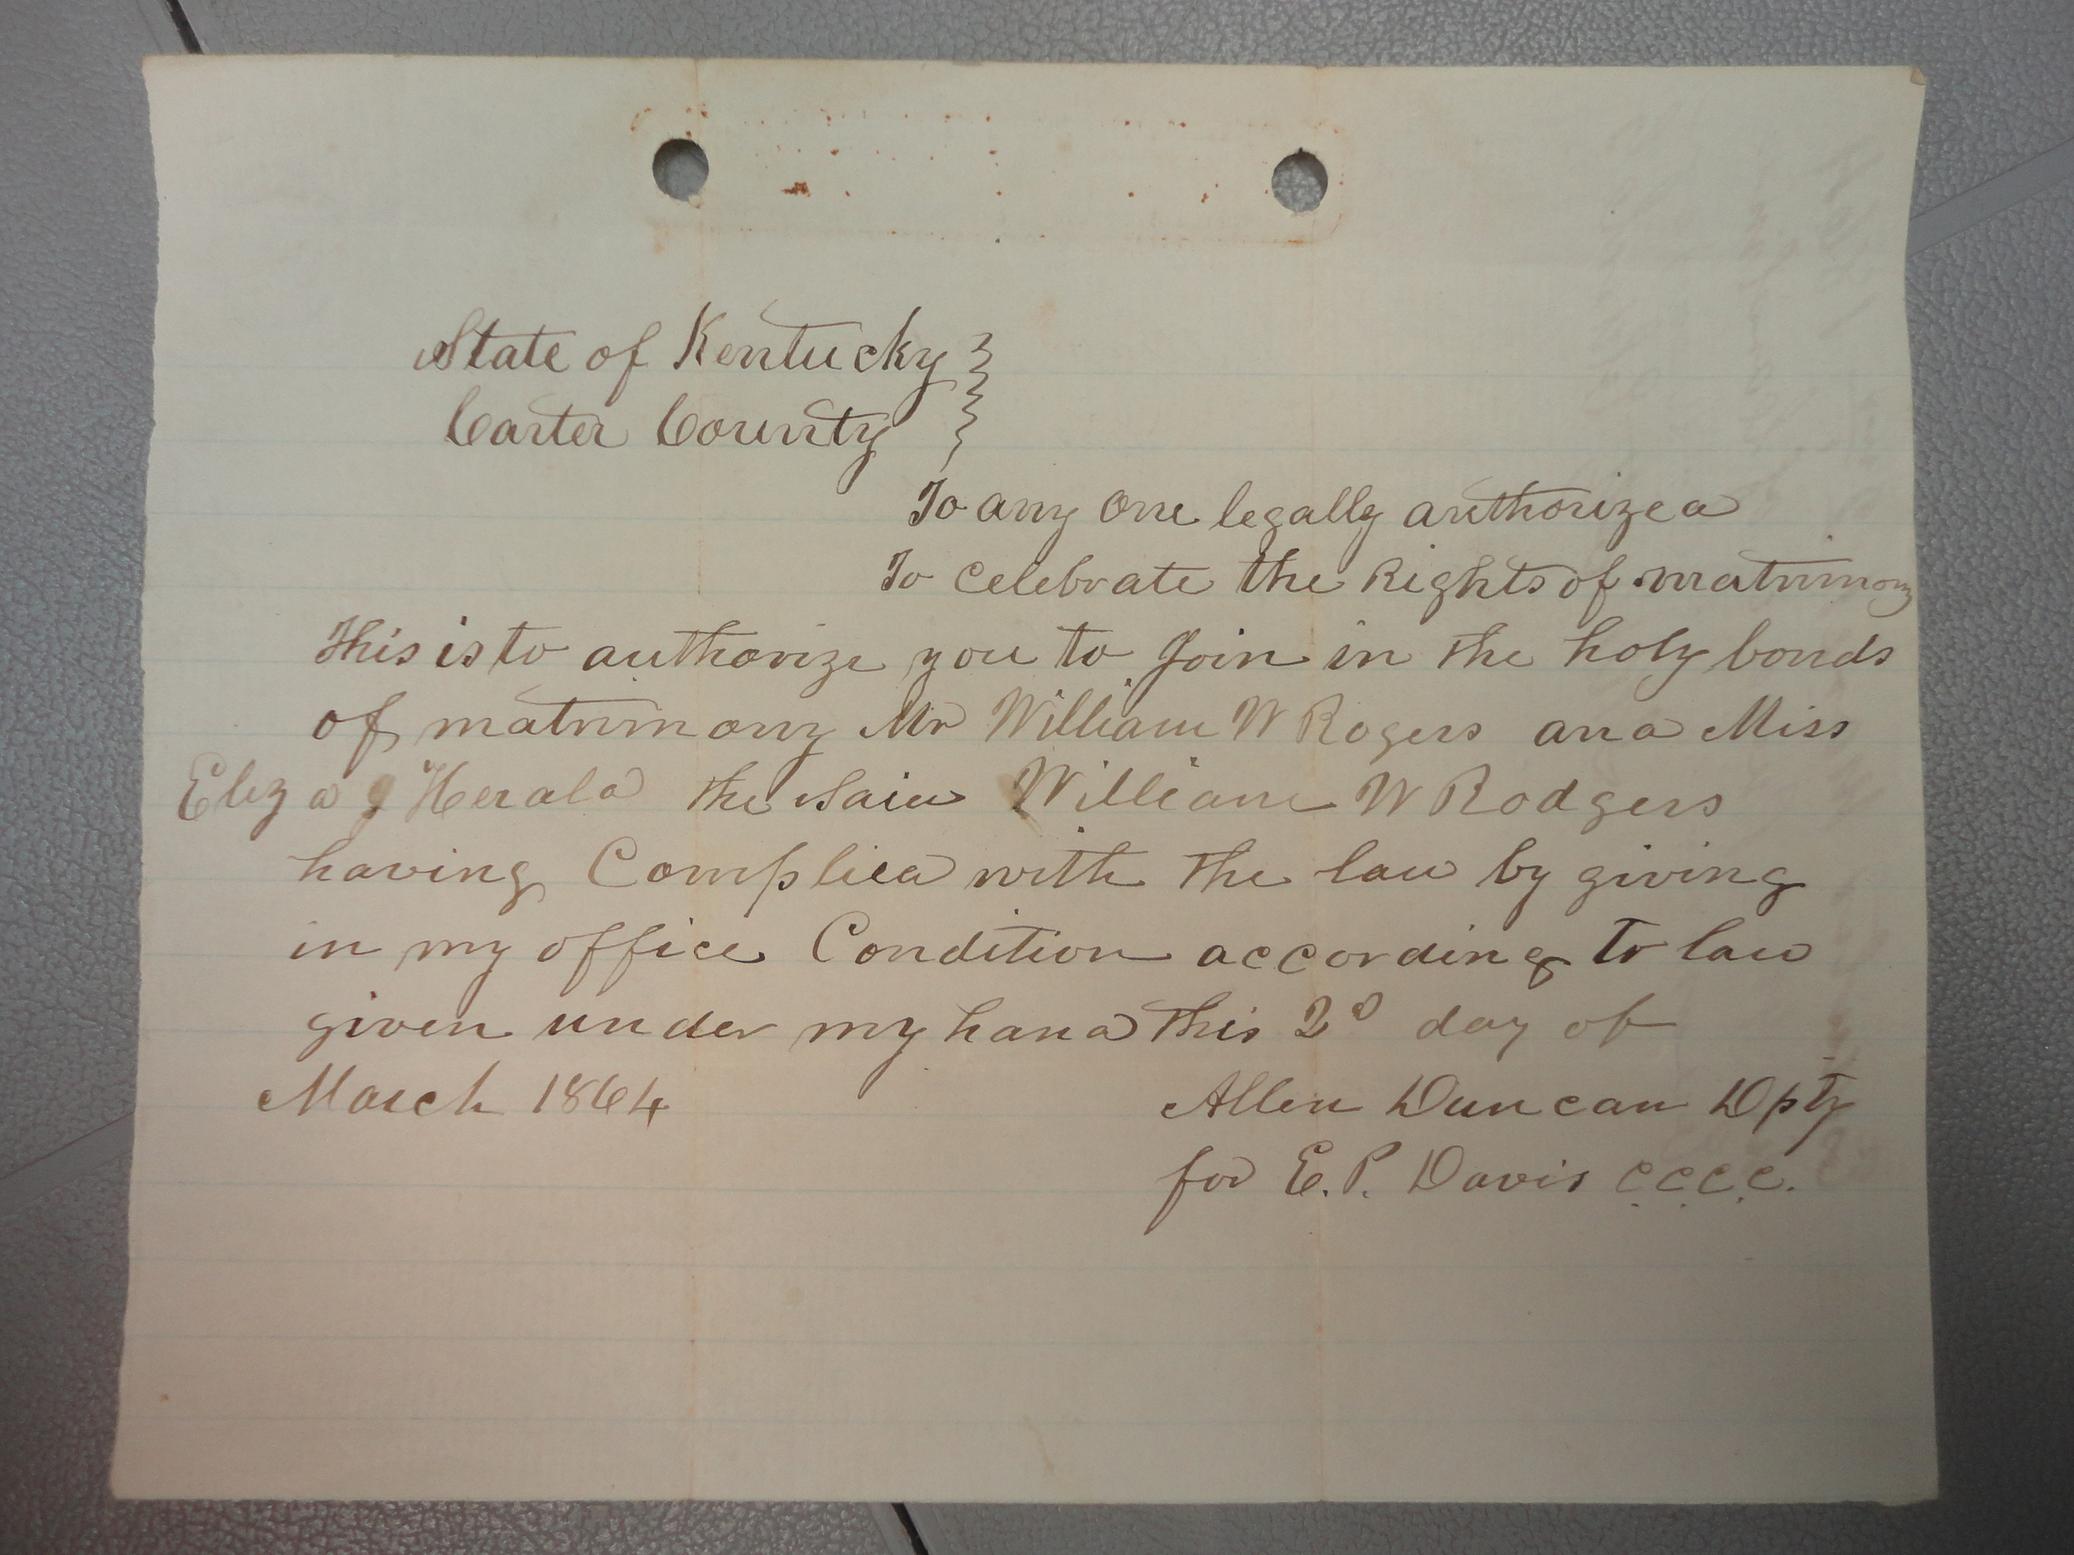 State of Kentucky
Carter County
To any one legally authorized
To celebrate the Rights of matrimony
This is to authorize you to Join in the holy bonds
of matrimony Mr William W Rogers and Miss
Eliza Herald the said William W Rodgers
having Complied with the law by giving
in my office Condition according to law
given under my hand this 2d day of
March 1864
Allen Duncan Dpty
for E. P. Davis C.C.C.C.